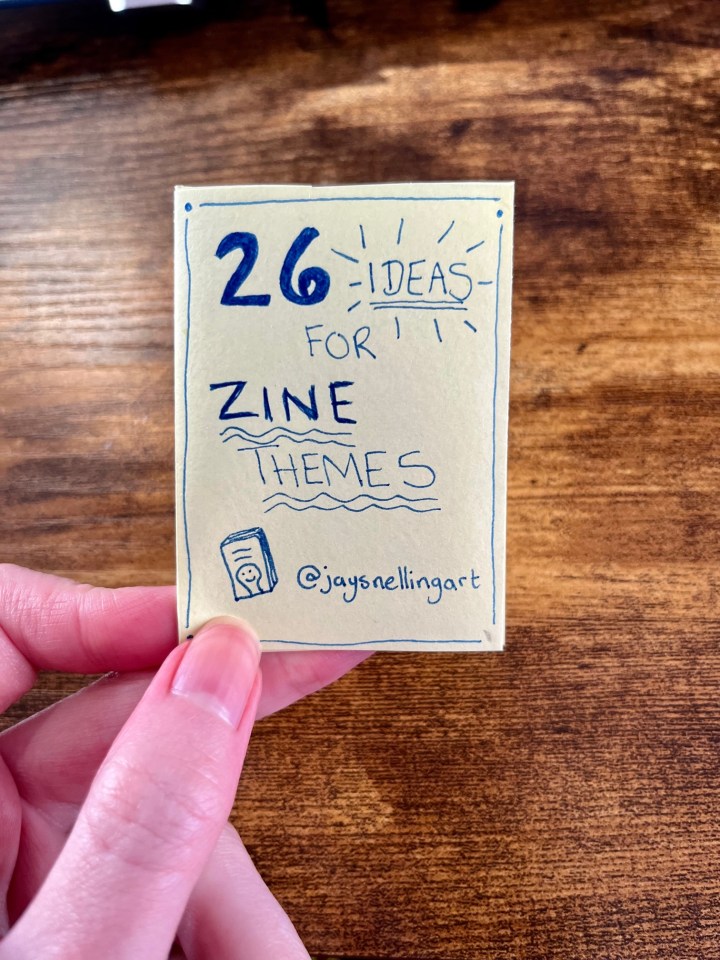 26 IDEAS
FOR
ZINE
THEMES
@jaysnellingart